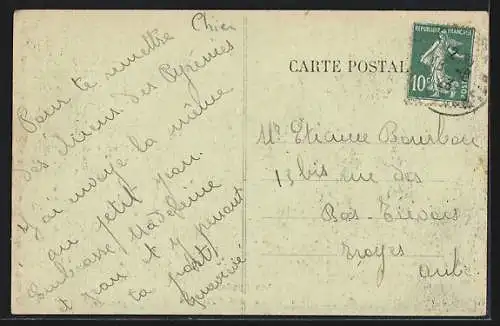 Chien
Pour te remettre
des chiens des Pyrénées
j'ai envoyé la même
au petit Jean.
Embrasse Madeleine
et Jean et
ta part,
Geneviève
CARTE POSTAL
REPUBLIQUE FRANÇAISE
10c
Mr Etienne Bourbon
13 bis rue des
Bas-Trévois
Troyes
Aube